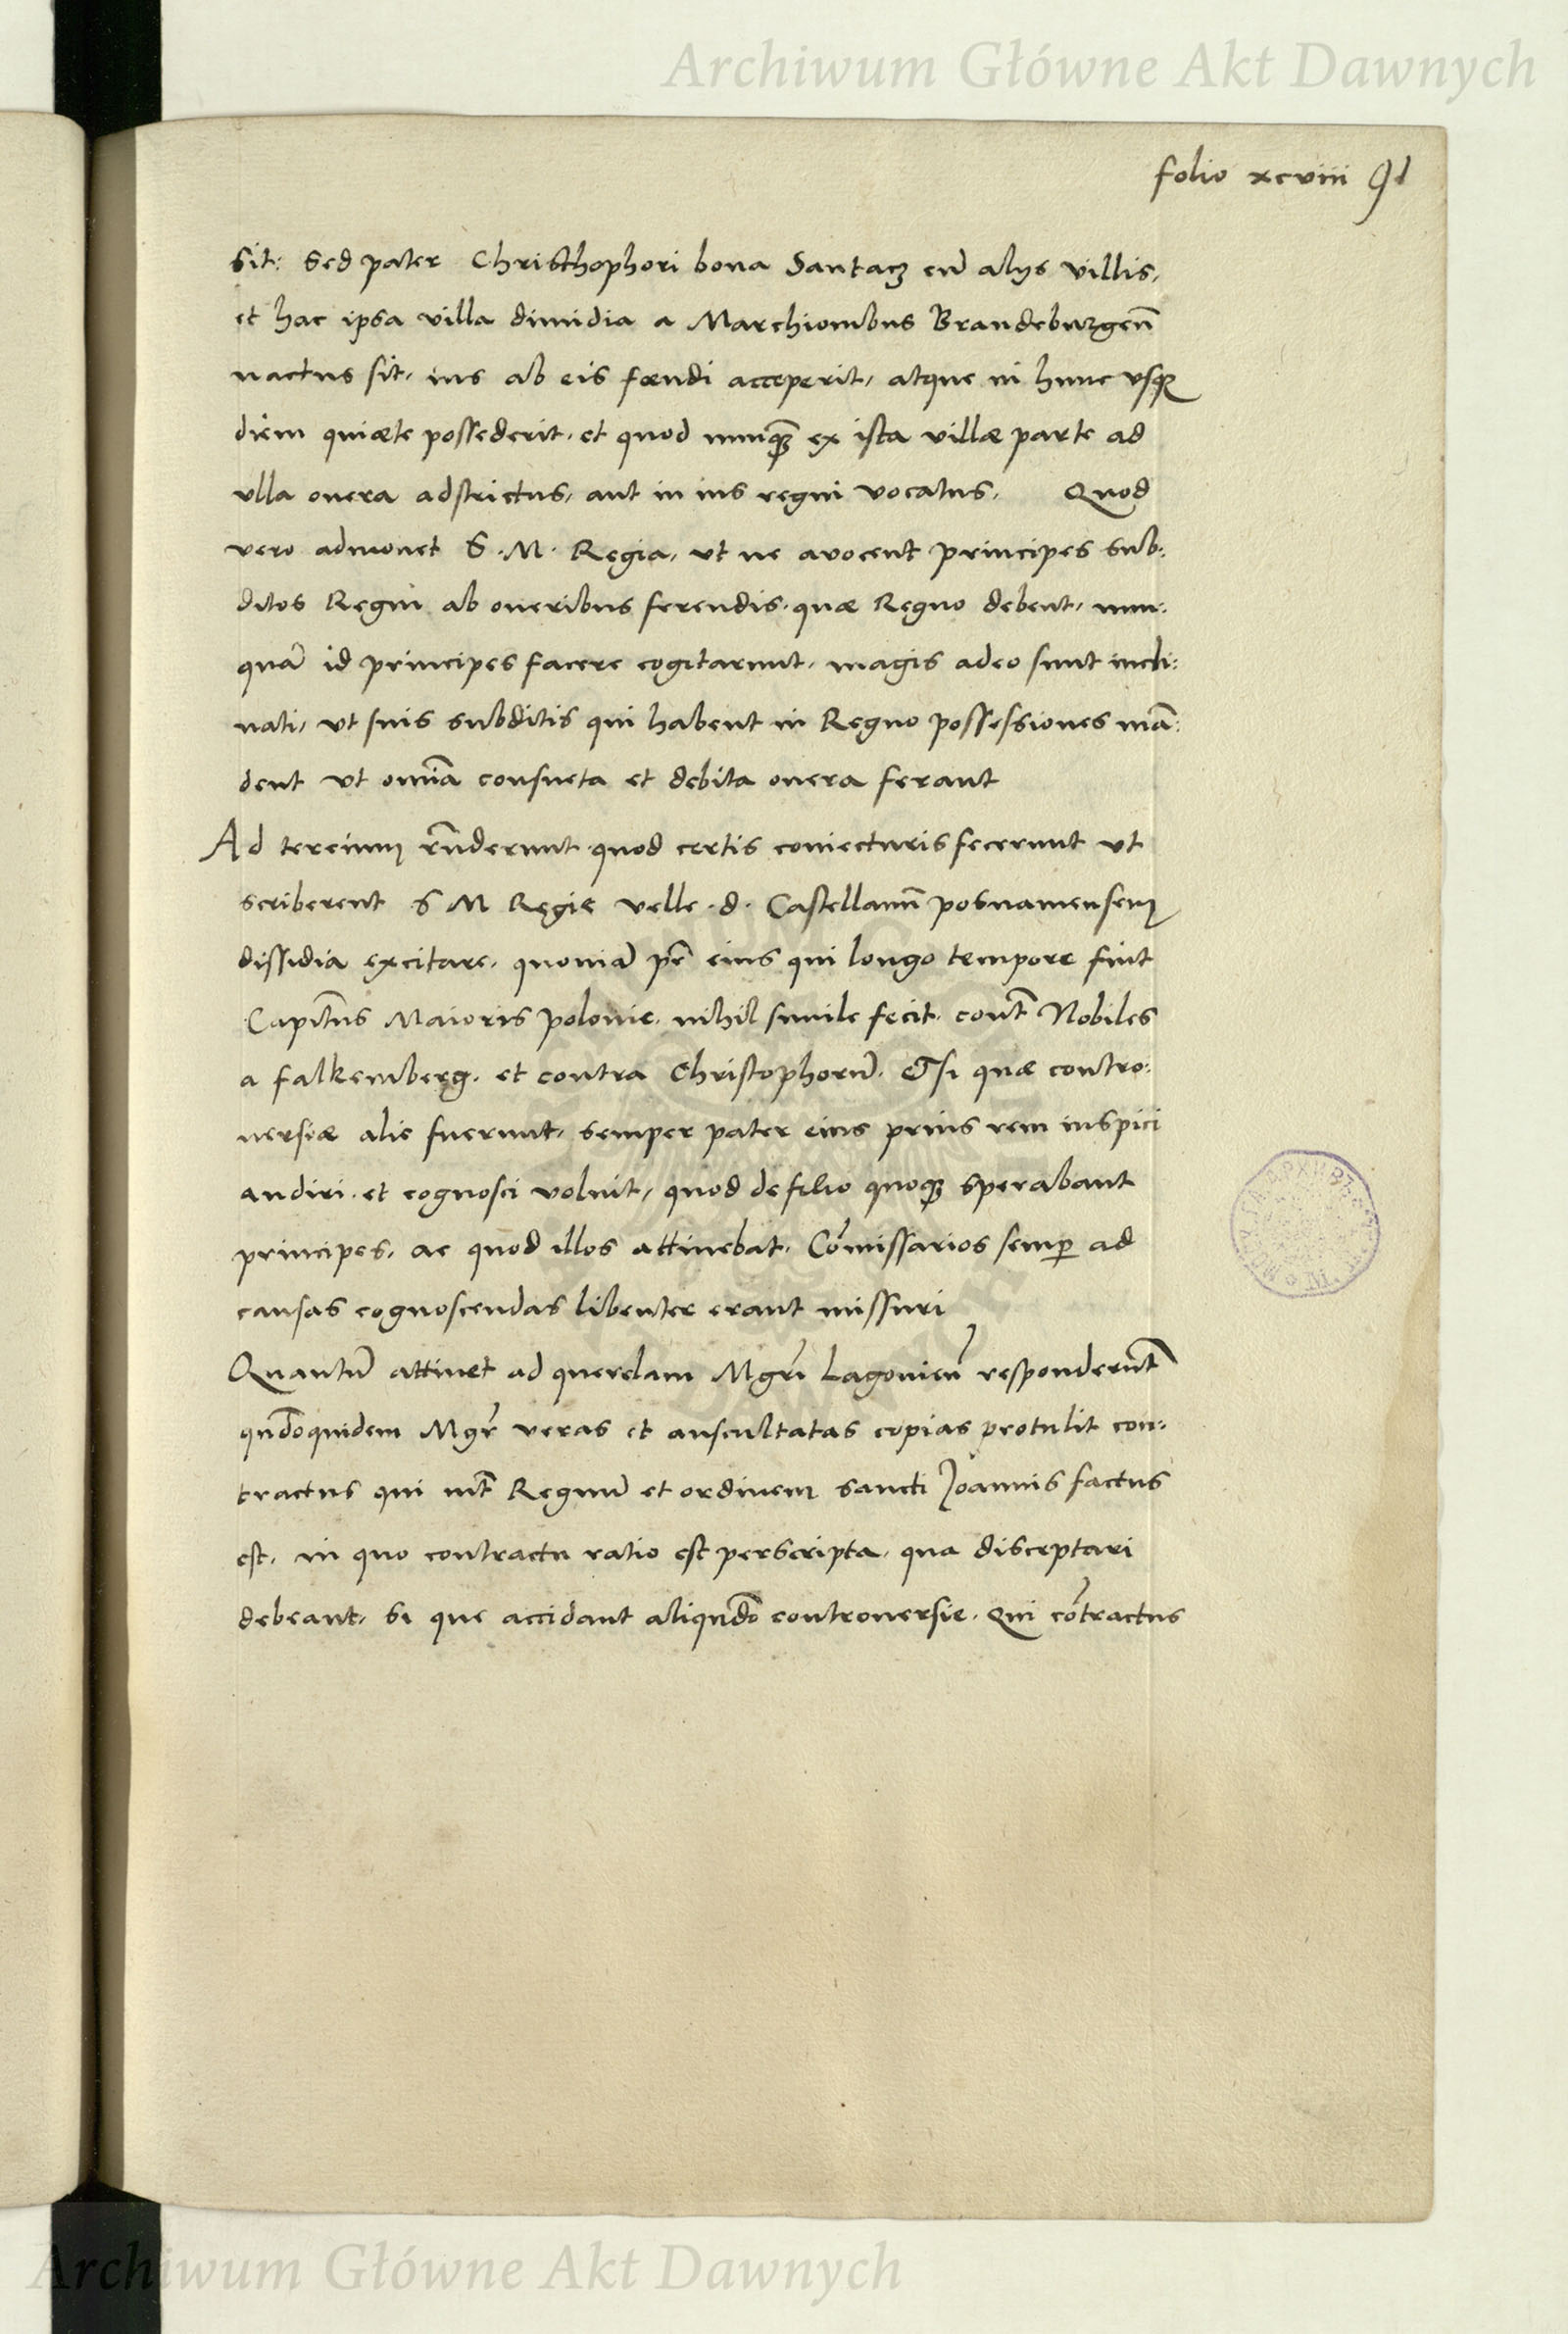 Archiwum Główne Akt Dawnych
folio xcviii 91
sit: Sed pater Christhophori bona Santacz cū alijs villis,
et hac ipsa villa dimidia a Marchionibus Brandeburgeñ
nactus sit, ius ab eis fœudi acceperit, atque in hunc vsqꝫ
diem quiæte possederit, et quod nunqꝫ ex ista villæ parte ad
vlla onera adstrictus, aut in ius regni vocatus. Quod
vero admonet S. M. Regia, vt ne avocent principes sub:
ditos Regni ab oneribus ferendis, quæ Regno debent, nun:
quā id principes facere cogitarunt, magis adeo sunt incli:
nati, vt suis subditis qui habent in Regno possessiones mā:
dent vt omīa consueta et debita onera ferant
Ad tercium rñderunt quod certis coniecturis fecerunt vt
scriberent S M Regie velle d. Castellanū posnaniensem
dissidia excitare, quoniā pr̄ eius qui longo tempore fuit
Capitn̄s Maioris polonie, nihil simile fecit, cont̄ Nobiles
a falkemberg, et contra Christophorū. Et si quæ contro:
uersiæ alie fuerunt, semper pater eius prius rem inspici
audiri et cognosci voluit, quod de filio quoqꝫ sperabant
principes, ac quod illos attinebat, Cōmissarios semꝑ ad
causas cognoscendas libenter erant missuri
Quantū attinet ad querelam Mgr̄i Lagouień responderūt
qn̄doquidem Mgr̄ veras et auscultatas copias protulit con:
tractus qui int̄ Regnū et ordinem sancti Joannis factus
est, in quo contractu ratio est perscripta, qua disceptari
debeant, si que accidant aliqn̄do controuersie. Qui cōtractus
Archiwum Główne Akt Dawnych